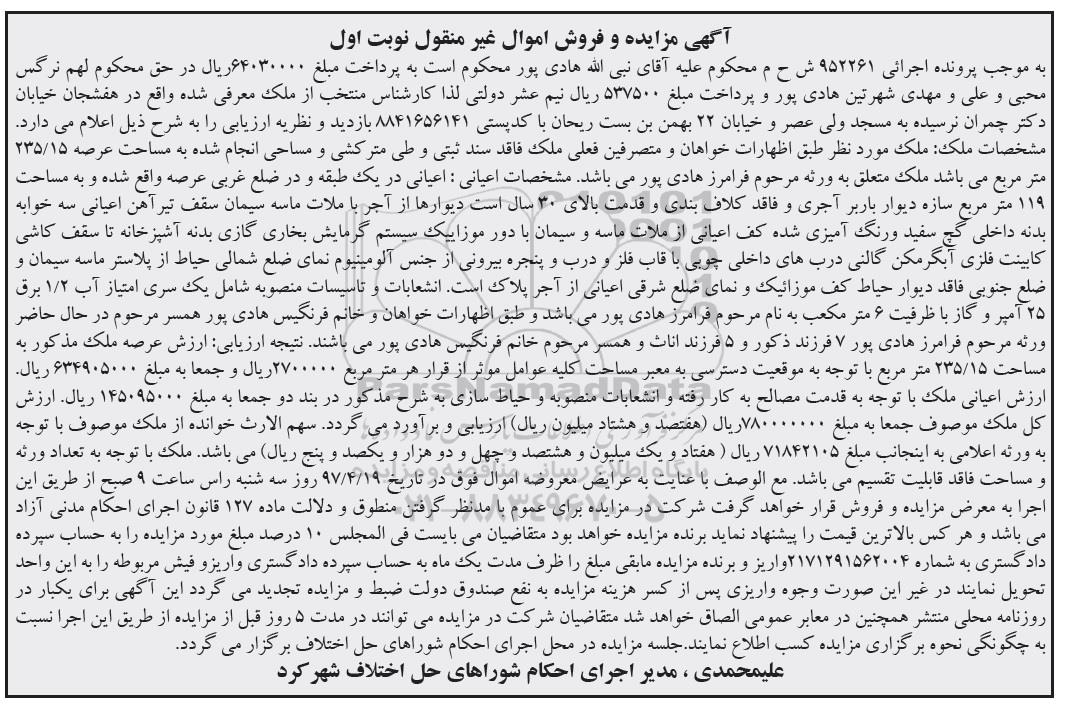 آگهی مزایده و فروش اموال غیر منقول نوبت اول
به موجب پرونده اجرائی ۹۵۲۲۶۱ ش ح م محکوم علیه آقای نبی الله هادی پور محکوم است به پرداخت مبلغ ۶۴۰۳۰۰۰۰ریال در حق محکوم لهم نرگس
محبی و علی و مهدی شهرتین هادی پور و پرداخت مبلغ ۵۳۷۵۰۰ ریال نیم عشر دولتی لذا کارشناس منتخب از ملک معرفی شده واقع در هفشجان خیابان
دکتر چمران نرسیده به مسجد ولی عصر و خیابان ۲۲ بهمن بن بست ریحان با کدپستی ۸۸۴۱۶۵۶۱۴۱ بازدید و نظریه ارزیابی را به شرح ذیل اعلام می دارد.
مشخصات ملک: ملک مورد نظر طبق اظهارات خواهان و متصرفین فعلی ملک فاقد سند ثبتی و طی مترکشی و مساحی انجام شده به مساحت عرصه ۲۳۵/۱۵
متر مربع می باشد ملک متعلق به ورثه مرحوم فرامرز هادی پور می باشد. مشخصات اعیانی : اعیانی در یک طبقه و در ضلع غربی عرصه واقع شده و به مساحت
۱۱۹ متر مربع سازه دیوار باربر آجری و فاقد کلاف بندی و قدمت بالای ۳۰ سال است دیوارها از آجر با ملات ماسه سیمان سقف تیرآهن اعیانی سه خوابه
بدنه داخلی گچ سفید ورنگ آمیزی شده کف اعیانی از ملات ماسه و سیمان با دور موزاییک سیستم گرمایش بخاری گازی بدنه آشپزخانه تا سقف کاشی
کابینت فلزی آبگرمکن گالنی درب های داخلی چوبی با قاب فلز و درب و پنجره بیرونی از جنس آلومینیوم نمای ضلع شمالی حیاط از پلاستر ماسه سیمان و
ضلع جنوبی فاقد دیوار حیاط کف موزائیک و نمای ضلع شرقی اعیانی از آجر پلاک است. انشعابات و تاسیسات منصوبه شامل یک سری امتیاز آب ۱/۲ برق
۲۵ آمپر و گاز با ظرفیت ۶ متر مکعب به نام مرحوم فرامرز هادی پور می باشد و طبق اظهارات خواهان و خانم فرنگیس هادی پور همسر مرحوم در حال حاضر
ورثه مرحوم فرامرز هادی پور ۷ فرزند ذکور و ۵ فرزند اناث و همسر مرحوم خانم فرنگیس هادی پور می باشند. نتیجه ارزیابی: ارزش عرصه ملک مذکور به
مساحت ۲۳۵/۱۵ متر مربع با توجه به موقعیت دسترسی به معبر مساحت کلیه عوامل موثر از قرار هر متر مربع ۲۷۰۰۰۰۰ریال و جمعا به مبلغ ۶۳۴۹۰۵۰۰۰ ریال.
ارزش اعیانی ملک با توجه به قدمت مصالح به کار رفته و انشعابات منصوبه و حیاط سازی به شرح مذکور در بند دو جمعا به مبلغ ۱۴۵۰۹۵۰۰۰ ریال. ارزش
کل ملک موصوف جمعا به مبلغ ۷۸۰۰۰۰۰۰۰ریال (هفتصد و هشتاد میلیون ریال) ارزیابی و برآورد می گردد. سهم الارث خوانده از ملک موصوف با توجه
به ورثه اعلامی به اینجانب مبلغ ۷۱۸۴۲۱۰۵ ریال ( هفتاد و یک میلیون و هشتصد و چهل و دو هزار و یکصد و پنج ریال) می باشد. ملک با توجه به تعداد ورثه
و مساحت فاقد قابلیت تقسیم می باشد. مع الوصف با عنایت به عرایض معروضه اموال فوق در تاریخ ۹۷/۴/۱۹ روز سه شنبه راس ساعت ۹ صبح از طریق این
اجرا به معرض مزایده و فروش قرار خواهد گرفت شرکت در مزایده برای عموم با مدنظر گرفتن منطوق و دلالت ماده ۱۲۷ قانون اجرای احکام مدنی آزاد
می باشد و هر کس بالاترین قیمت را پیشنهاد نماید برنده مزایده خواهد بود متقاضیان می بایست فی المجلس ۱۰ درصد مبلغ مورد مزایده را به حساب سپرده
دادگستری به شماره ۲۱۷۱۲۹۱۵۶۲۰۰۴واریز و برنده مزایده مابقی مبلغ را ظرف مدت یک ماه به حساب سپرده دادگستری واریزو فیش مربوطه را به این واحد
تحویل نمایند در غیر این صورت وجوه واریزی پس از کسر هزینه مزایده به نفع صندوق دولت ضبط و مزایده تجدید می گردد این آگهی برای یکبار در
روزنامه محلی منتشر همچنین در معابر عمومی الصاق خواهد شد متقاضیان شرکت در مزایده می توانند در مدت ۵ روز قبل از مزایده از طریق این اجرا نسبت
به چگونگی نحوه برگزاری مزایده کسب اطلاع نمایند.جلسه مزایده در محل اجرای احکام شوراهای حل اختلاف برگزار می گردد.
علیمحمدی ، مدیر اجرای احکام شوراهای حل اختلاف شهرکرد
ParsNamadData
پایگاه اطلاع رسانی مناقصه و مزایده
۰۲۱-۸۸۳۴۹۶۷۰-۵